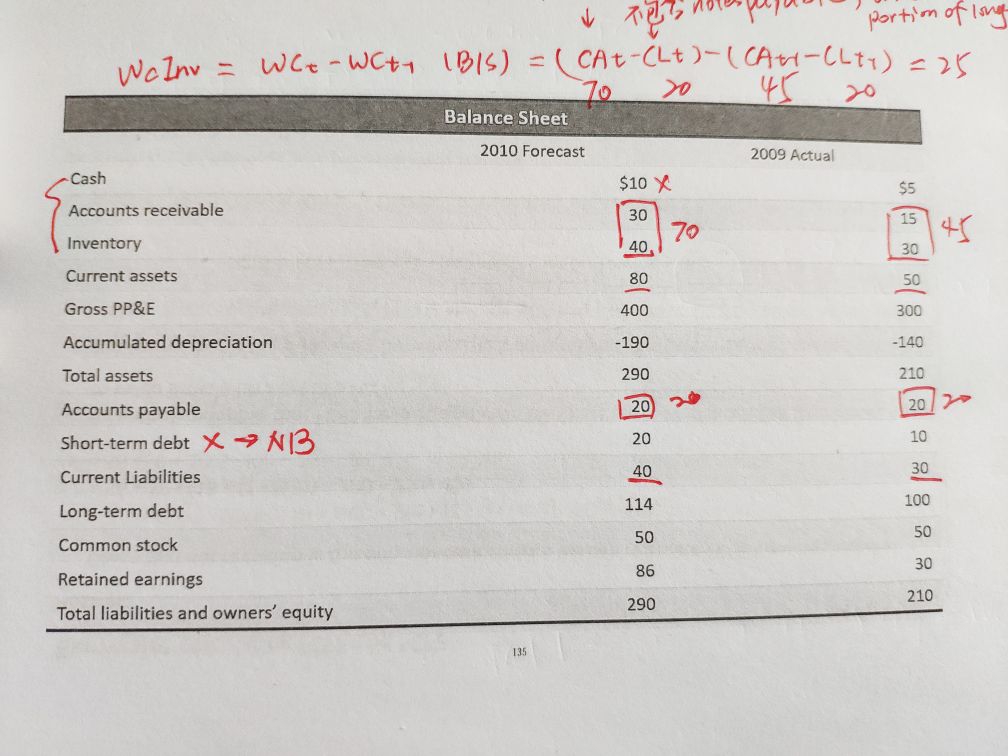 不包含 notes payable,
portion of long
WCInv = WCt - WCt-1 (B/S) = (CAt-CLt)-(CAt-1-CLt-1) = 25
70 20 45 20
Balance Sheet
2010 Forecast 2009 Actual
Cash $10 X $5
Accounts receivable 30 15
70 45
Inventory 40 30
Current assets 80 50
Gross PP&E 400 300
Accumulated depreciation -190 -140
Total assets 290 210
Accounts payable 20 20 20 20
Short-term debt X → NIB 20 10
Current Liabilities 40 30
Long-term debt 114 100
Common stock 50 50
Retained earnings 86 30
Total liabilities and owners' equity 290 210
135